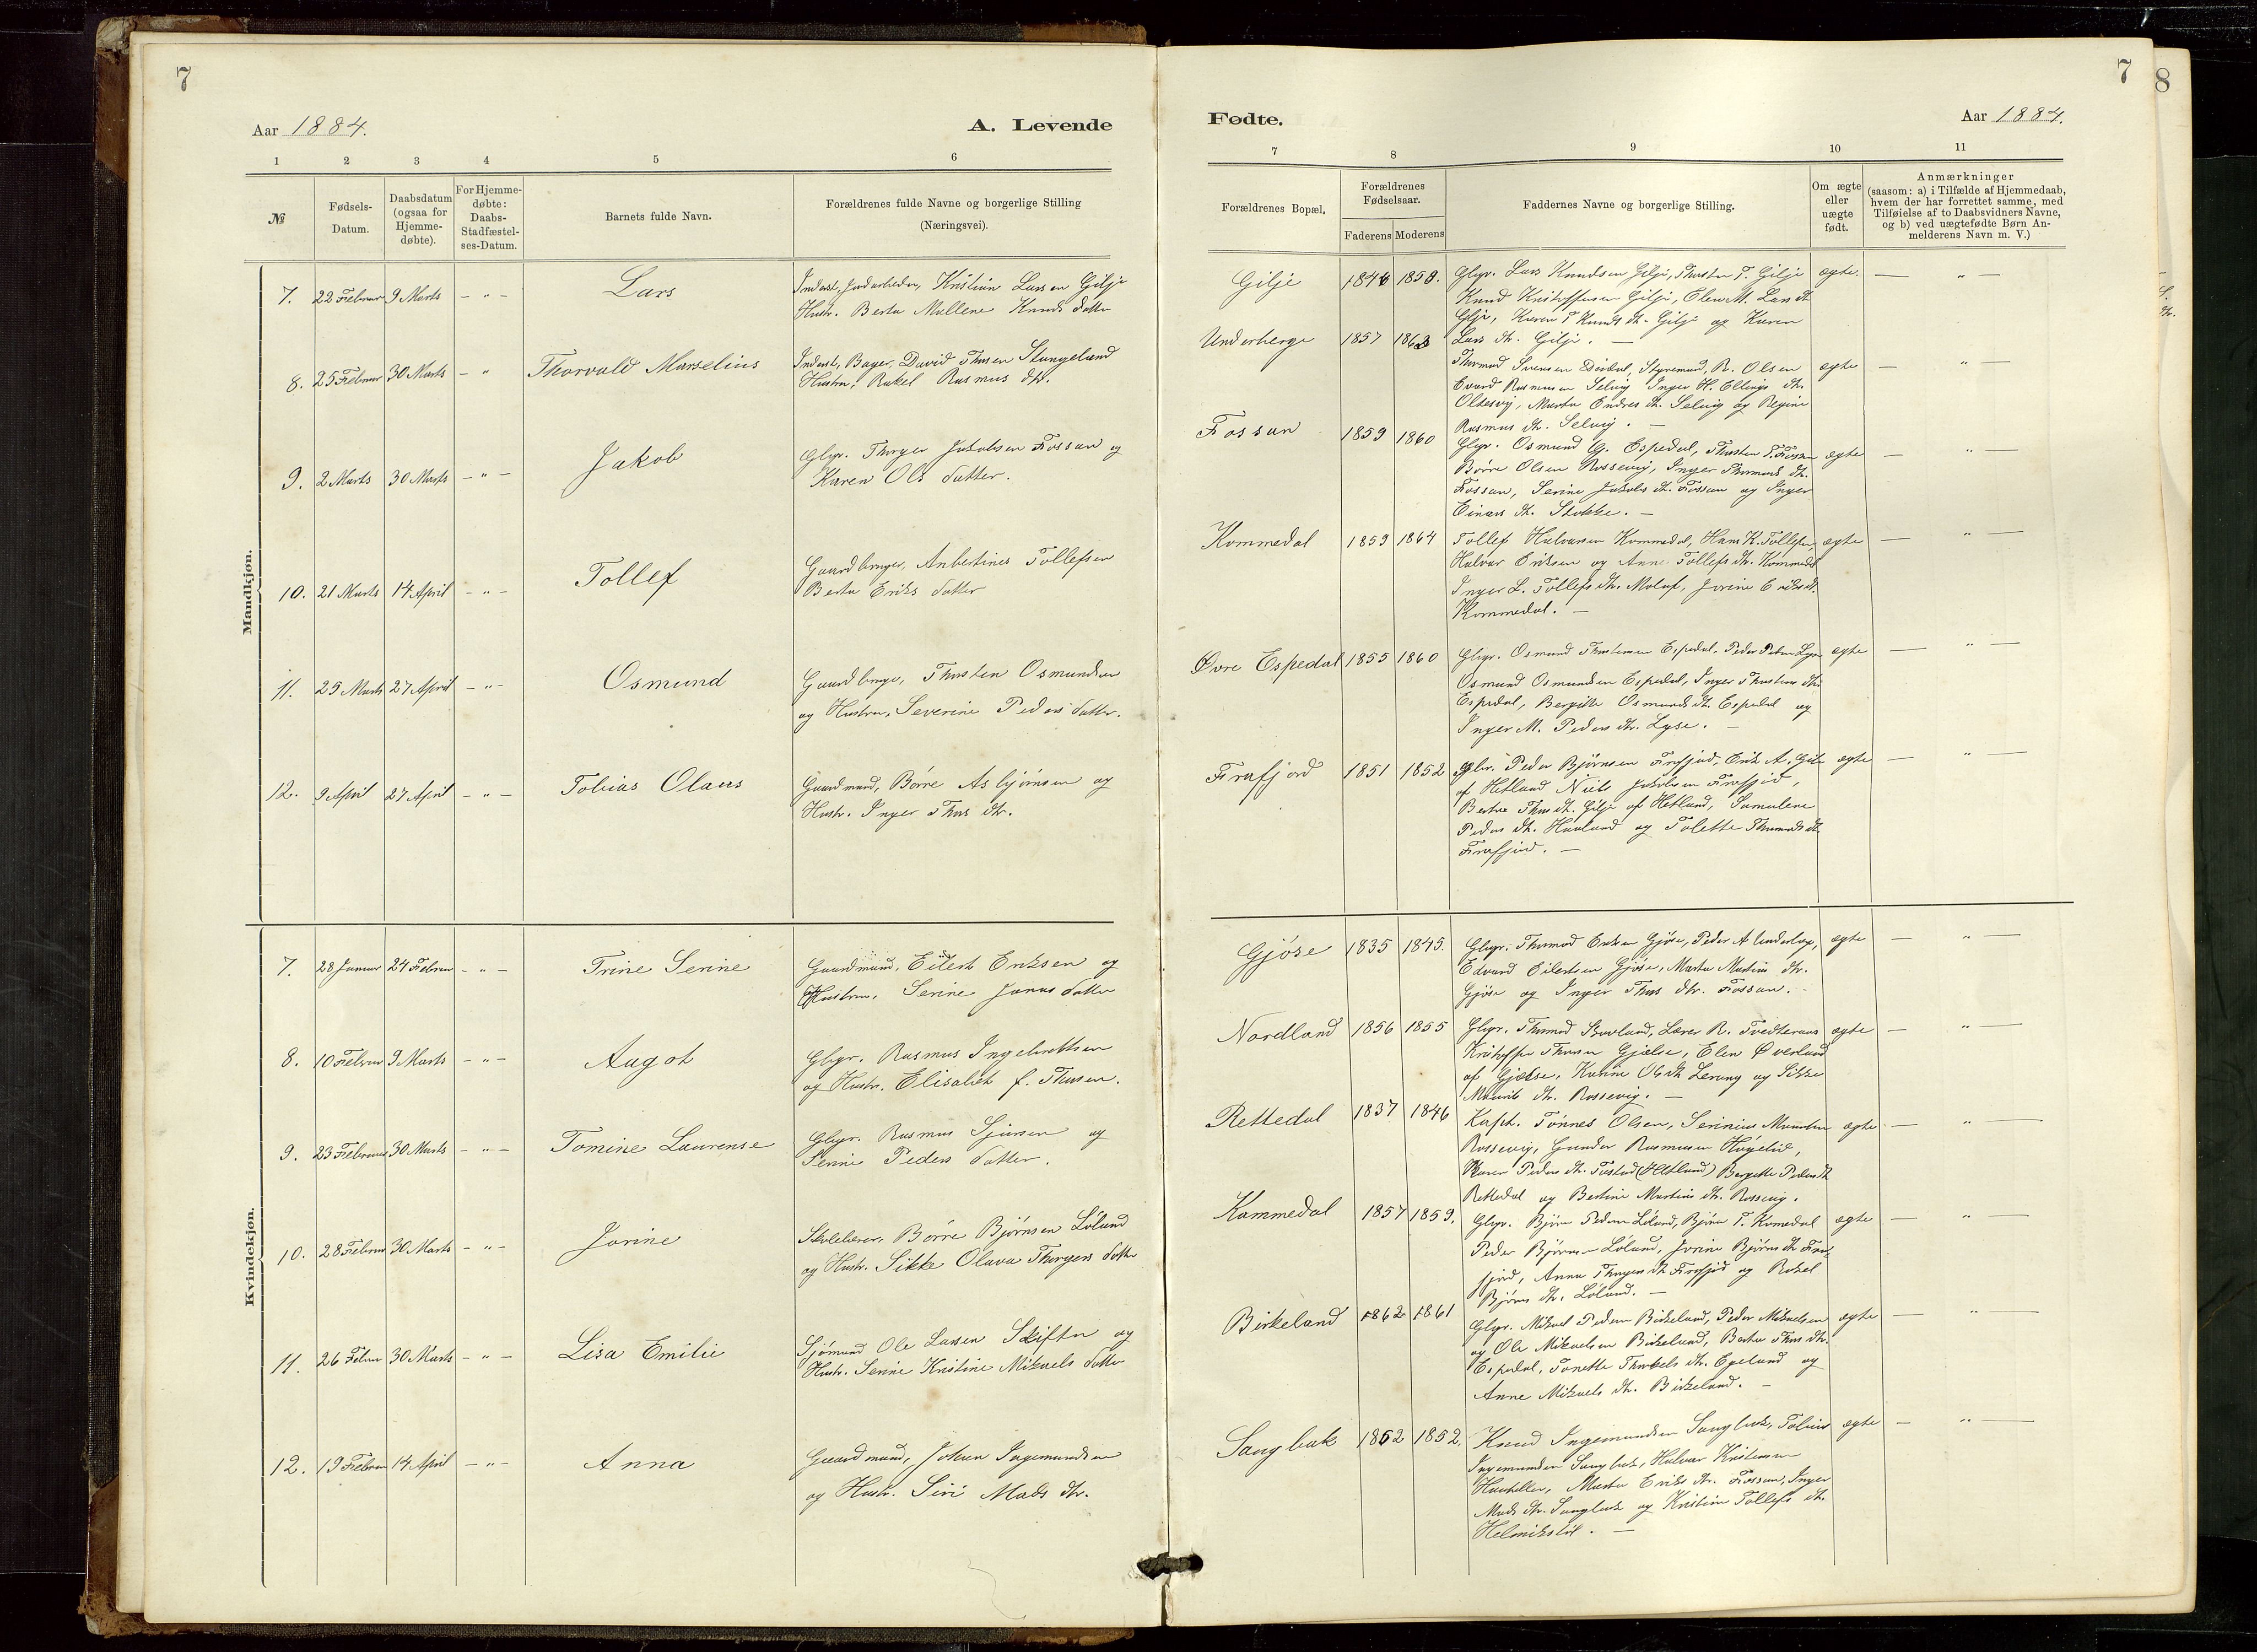 7
Aar 1884.
A. Levende
1 2 3 4 5 6
№
Fødsels-
Datum.
Daabsdatum
(ogsaa for
Hjemme-
døbte).
For Hjemme-
døbte:
Daabs-
Stadfæstel-
ses-Datum.
Barnets fulde Navn.
Forældrenes fulde Navne og borgerlige Stilling
(Næringsvei).
Mandkjøn.
7. 22 Februar 9 Marts - " - Lars
Kristian Larsen Gilje
Hustr. Berta Mallene Knuds datter
8. 25 Februar 30 Marts - " Thorvald Marselius
Inderst, Bager, David Thusen Stangeland
Hustru, Rakel Rasmus dtr.
9. 2 Marts 30 Marts - " - Jakob
Gbgr. Thorger Jakobsen Fossan og
Karen Ols datter.
10. 21 Marts 14 April - " - Tollef
Gaardbruger, Anbertines Tollefsen
Berta Eriks datter
11. 25 Marts 27 April - " - Osmund
Gaardbruger, Thosten Osmundsen
og Hustru, Severine Peders datter.
12. 9 April 27 April - " - Tobias Olaus
Gaardmand, Børre Asbjørnsen og
Hustr. Inger Thos dtr.
Kvindekjøn.
7. 28 Januar 24 Februar - " - Trine Serine
Gaardmand, Eilert Eriksen og
Hustru, Serine Jonas datter
8. 10 Februar 9 Marts - " - Aagot
Gbgr. Rasmus Ingebretsen
og Hustr. Elisabet f. Thusen.
9. 23 Februar 30 Marts - " - Tomine Laurense
Gbgr. Rasmus Sjursen og
Serine Peders datter.
10. 28 Februar 30 Marts - " - Jorine
Skolelærer, Børre Bjørnsen Løland
og Hustr. Sikke Olava Thorgers datter
11. 26 Febru 30 Marts - " - Lisa Emilie
Sjømand Ole Larsen Skiftn og
Hustr. Serine Kristine Mikaels datter
12. 19 Februar 14 April - " - Anna
Gaardmand, Johan Ingemundsen
og Hustr. Siri Mads dtr.
7
8
Fødte.
Aar 1884.
7 8 9 10 11
Forældrenes Bopæl.
Forældrenes
Fødselsaar.
Faderens Moderens
Faddernes Navne og borgerlige Stilling.
Om ægte
eller
uægte
født.
Anmærkninger
(saasom: a) i Tilfælde af Hjemmedaab,
hvem der har forrettet samme, med
Tilføielse af to Daabsvidners Navne,
og b) ved uægtefødte Børn An-
melderens Navn m. V.)
Gilje 1846 1858. Gbgr. Lars Knudsen Gilje, Thosten T. Gilje ægte. — " —
Knud Kristoffersen Gilje, Elen M. Lars dt
Gilje, Karen T Knuds dt. Gilje og Karen
Lars dt. Gilje. —
Underberge 1857 1863
Thormod Svensen Styrmand, R. Olsen ægte — " —
Evard Rasmusen Selvig Inger H. Ellings dt.
Oltesvig, Marta Endres dt. Selvig og Regine
Rasmus dt. Selvig. —
Fossan 1859 1860
Gbgr. Osmund G. Espedal, Thosten T. Fossan ægte — " —
Børre Olsen Rossevig, Inger Thormods dt.
Fossan, Serine Jakobs dt. Fossan og Inger
Einars dt. Stokke. —
Kommedal 1859 1864 Tollef Halvorsen Kommedal, Hans K. Tollefsen, ægte — " —
Halvor Eriksen og Anne Tollefs dt. Kommedal
Inger L. Tollefs dt. Jorine Eriks dt.
Kommedal. —
Øvre Espedal 1855 1860 Gbgr. Osmund Thostensen Espedal, Peder Peders Lyse ægte — " —
Osmund Osmundsen Espedal, Inger Thostens dtr
Espedal, Bergitte Osmunds dt. Espedal og
Inger M. Peders dt. Lyse. —
Frafjord 1851 1852 Gbr. Peder Bjørnsen Frafjord, Erik A. Gilje ægte — " —
af Hetland Niels Jakobsen Frafjord,
Bertine Thos dt. Gilje af Hetland, Samalene
Peders dt. Haaland og Tolette Thormods dt
Frafjord. —
Gjøse 1835 1845. Gbgr. Thormod Eriksen Gjøse, Peder A ægte — " —
Edvard Eilertsen Gjøse, Marta Martins dtr.
Gjøse og Inger Thos dtr. Fossan. -
Nordland 1856 1855 Gbgr. Thormod Lærer R. Tvedteraas ægte — " —
Kristoffer Thorsen Gjølse, Elen Øverland
af Gjølse, Karine Ols dt Lerang og Sikke
dt. Rossevig. —
Rettedal 1837 1846 Kapt. Tønnes Olsen, Serinius ægte — " —
Rossevig, Gunder Rasmusen Høgelid,
Karen Peders dt. (Hetland) Bergitte Peders dt
Rettedal og Bertine Martins dt. Rossevig.
Kommedal 1857 1859. Gbgr. Bjørn Pedersen Løland, Bjørn T. Komedal ægte — " —
Peder Bjørnsen Løland, Jorine Bjørns dt Fra-
fjord, Anna Thorgers dt Frafjord og Rakel
Bjørns dt. Løland. —
Birkeland 1862 1861 Gbgr. Mikael Pedersen Birkeland, Peder Mikaelsen ægte — " —
og Ole Mikaelsen Birkeland, Berta Thos dt.
Espedal, Tonette Thorkels dt. Egeland og
Anne Mikaels dt. Birkeland. —
Sangbak 1852 1852, Knud Ingemundsen Sangbak, Tobias ægte — " —
Ingemundsen Sangbak, Halvor Kristensen
Marta Eriks dt. Fossan, Inger
Mads dt. Sangbak og Kristine Tollefs dt.
Helmikstøl. —